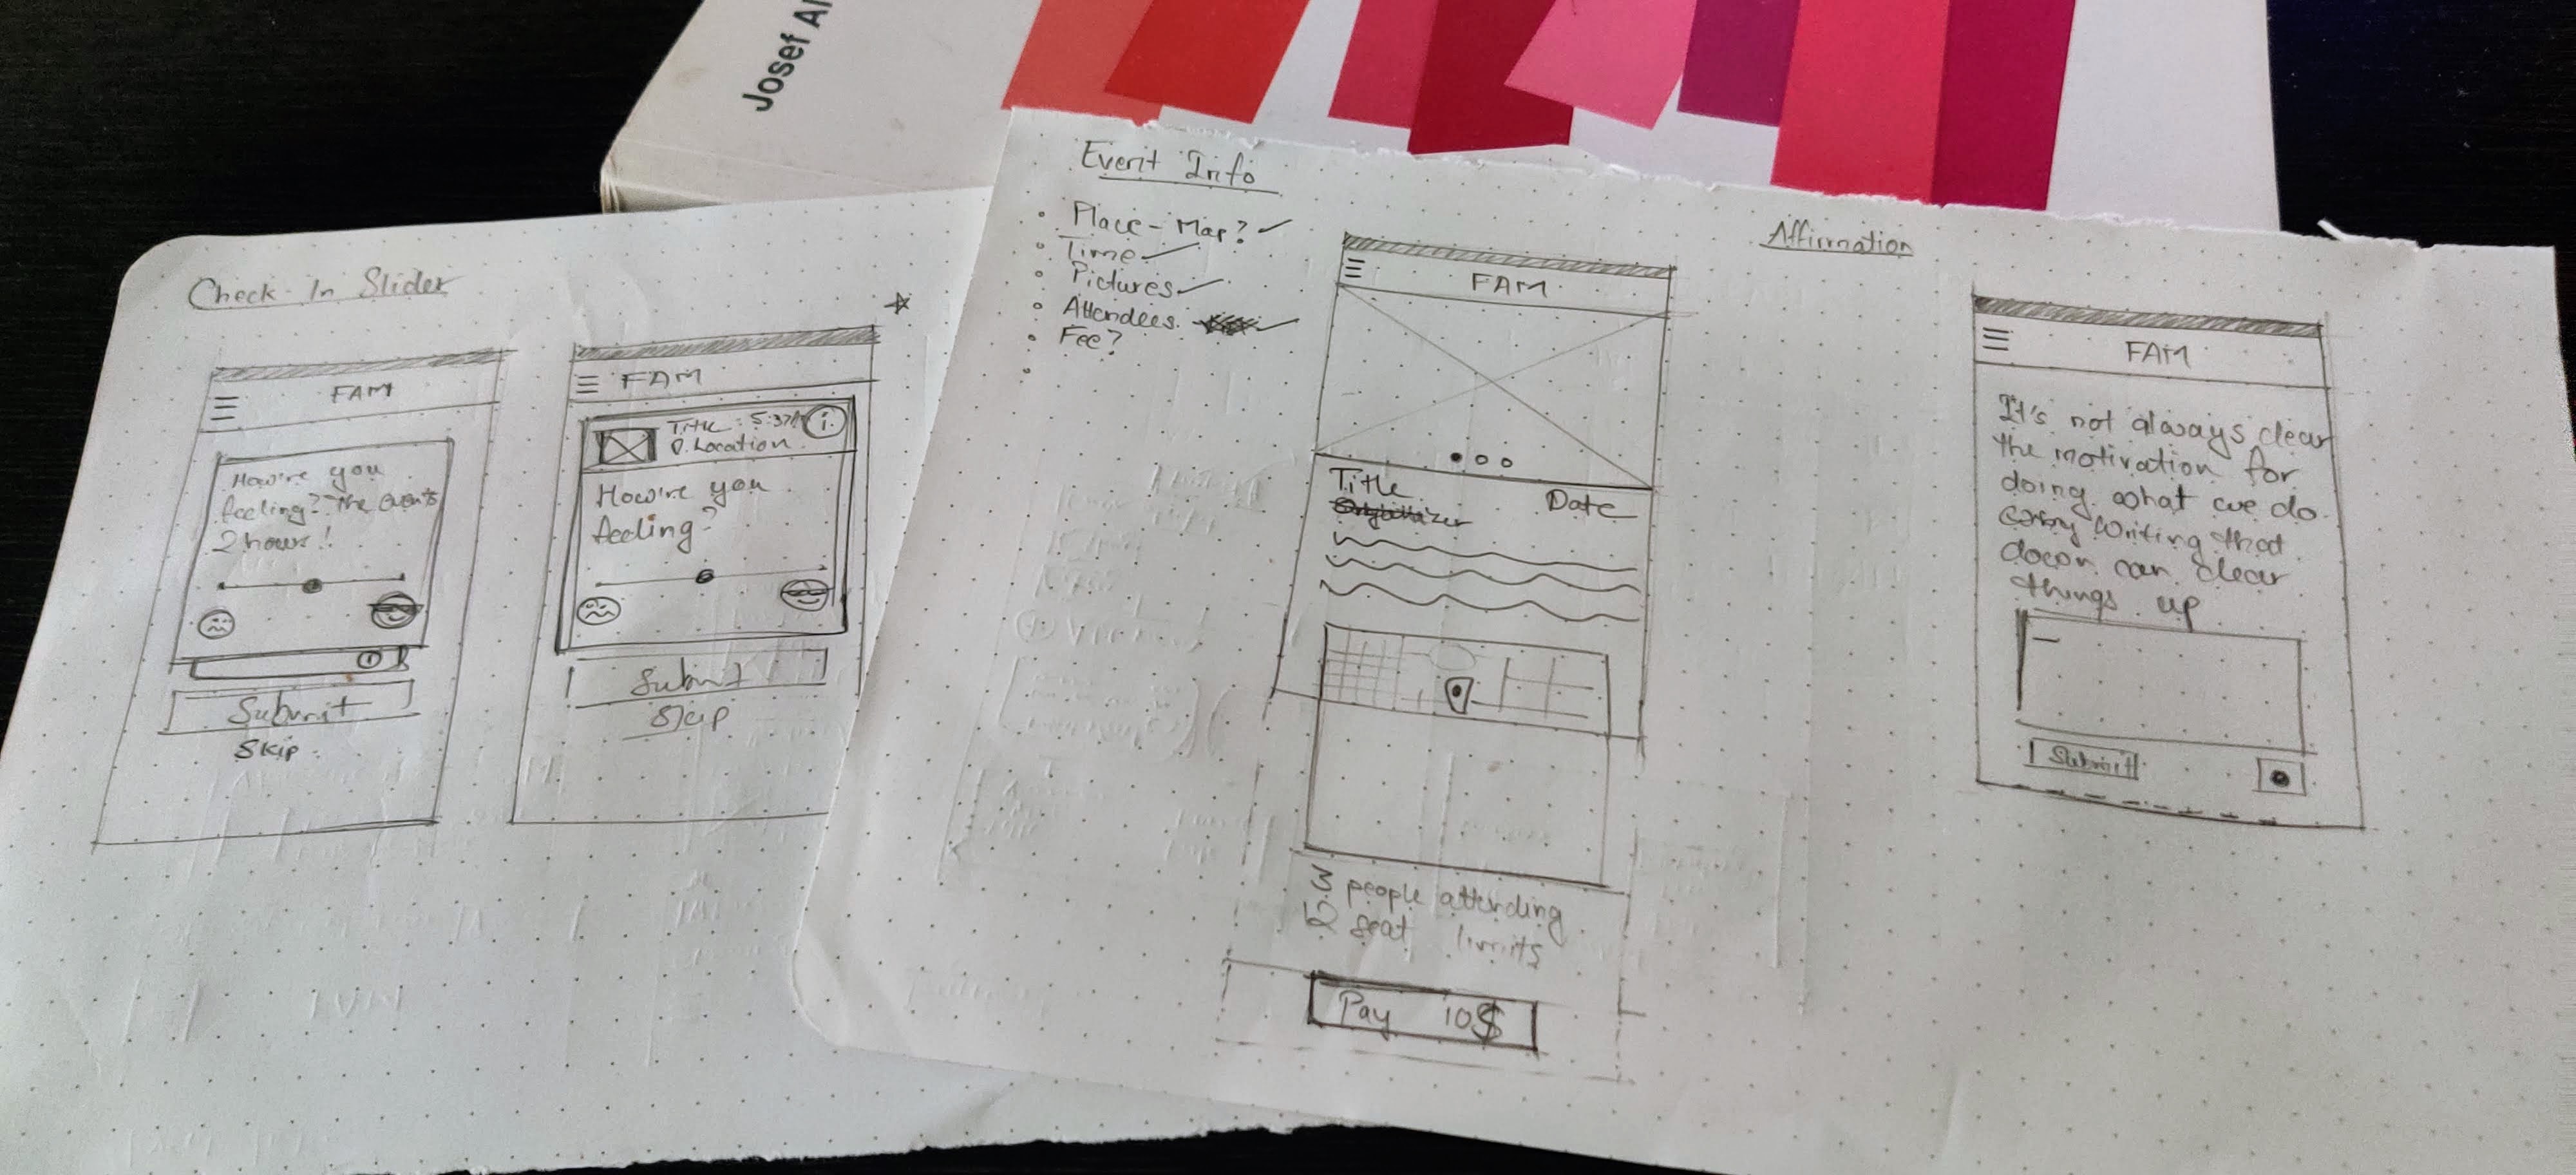 Josef Al
Check-In Slider
FAM
How're you
feeling? The event's
2 hours!
Submit
Skip
FAM
Title : 5:37
Location
i
How're you
feeling?
Submit
Skip
Event Info
Place - Map?
Time
Pictures
Attendees
Fee?
FAM
Title
Date
Organizer
3 people attending
seat limits
Pay 10$
Affirmation
FAM
It's not always clear
the motivation for
doing what we do
Writing that
down can clear
things up
Submit